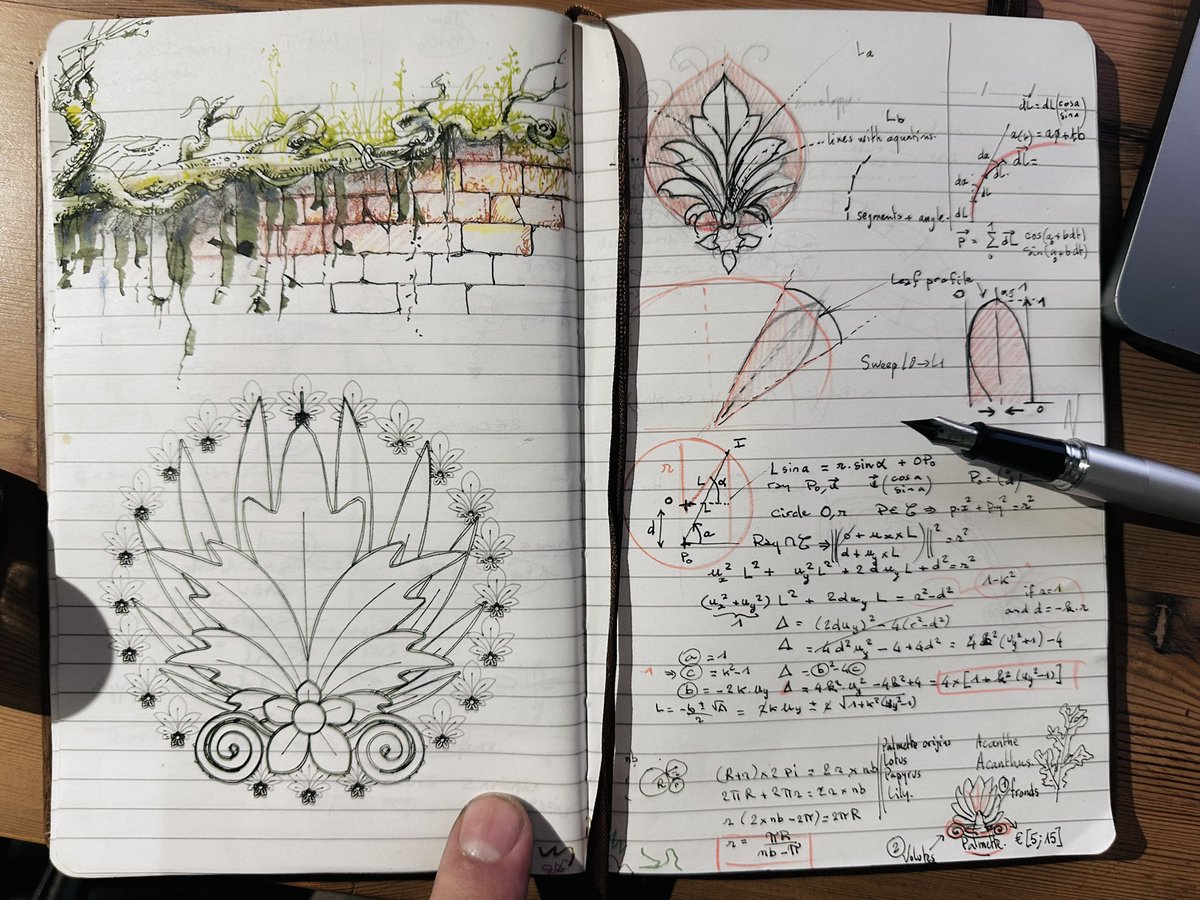 La
Lb
lines with equations.
segments + angle.
dL = dL(cosa
sina)
a(t) = a₀ + tb
da
dL =
da
dL
dL
P = Σ dL cos(a₀+bdt)
sin(a₀+bdt)
Leaf profile
Sweep L0→L1
0
1
0
I
r
L
α
O
L
d
a
P₀
L sina = r.sinα + OP₀
ray P₀, u u(cosa
sina)
P₀ = (0
d)
circle O, r P∈C ⇒ p.x² + p.y² = r²
Ray ∩ C ⇒ ||(0 + ux × L
d + uy × L)||² = r²
ux² L² + uy² L² + 2 d uy L + d² = r²
(ux² + uy²) L² + 2duy L = r² - d²
1
1-k²
if r=1
and d = -k.r
Δ = (2duy)² - 4(r²-d²)
Δ = 4d²uy² - 4 + 4d² = 4k²(uy²+1) - 4
a = 1
⇒ c = k²-1 Δ = b² - 4c
b = -2k.uy Δ = 4k².uy² - 4k² + 4 = 4×[1 + k²(uy²-1)]
L = -b ± √Δ / 2 = 2kuy ± 2√1+k²(uy²-1)
R r
(R+r)×2Pi = 2r×nb
2πR + 2πr = 2r×nb
r(2×nb - 2π) = 2πR
r = πR / nb - π
Palmette origins
Lotus
Papyrus
Lily.
Acanthe
Acanthus
① fronds
② Volutes
Palmette.
€[5;15]